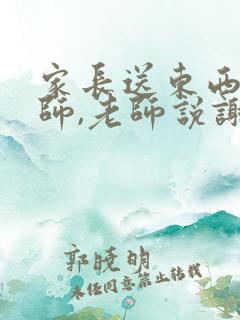 家長送東西
師,老師說謝
郭曉明
未任同意禁止转载